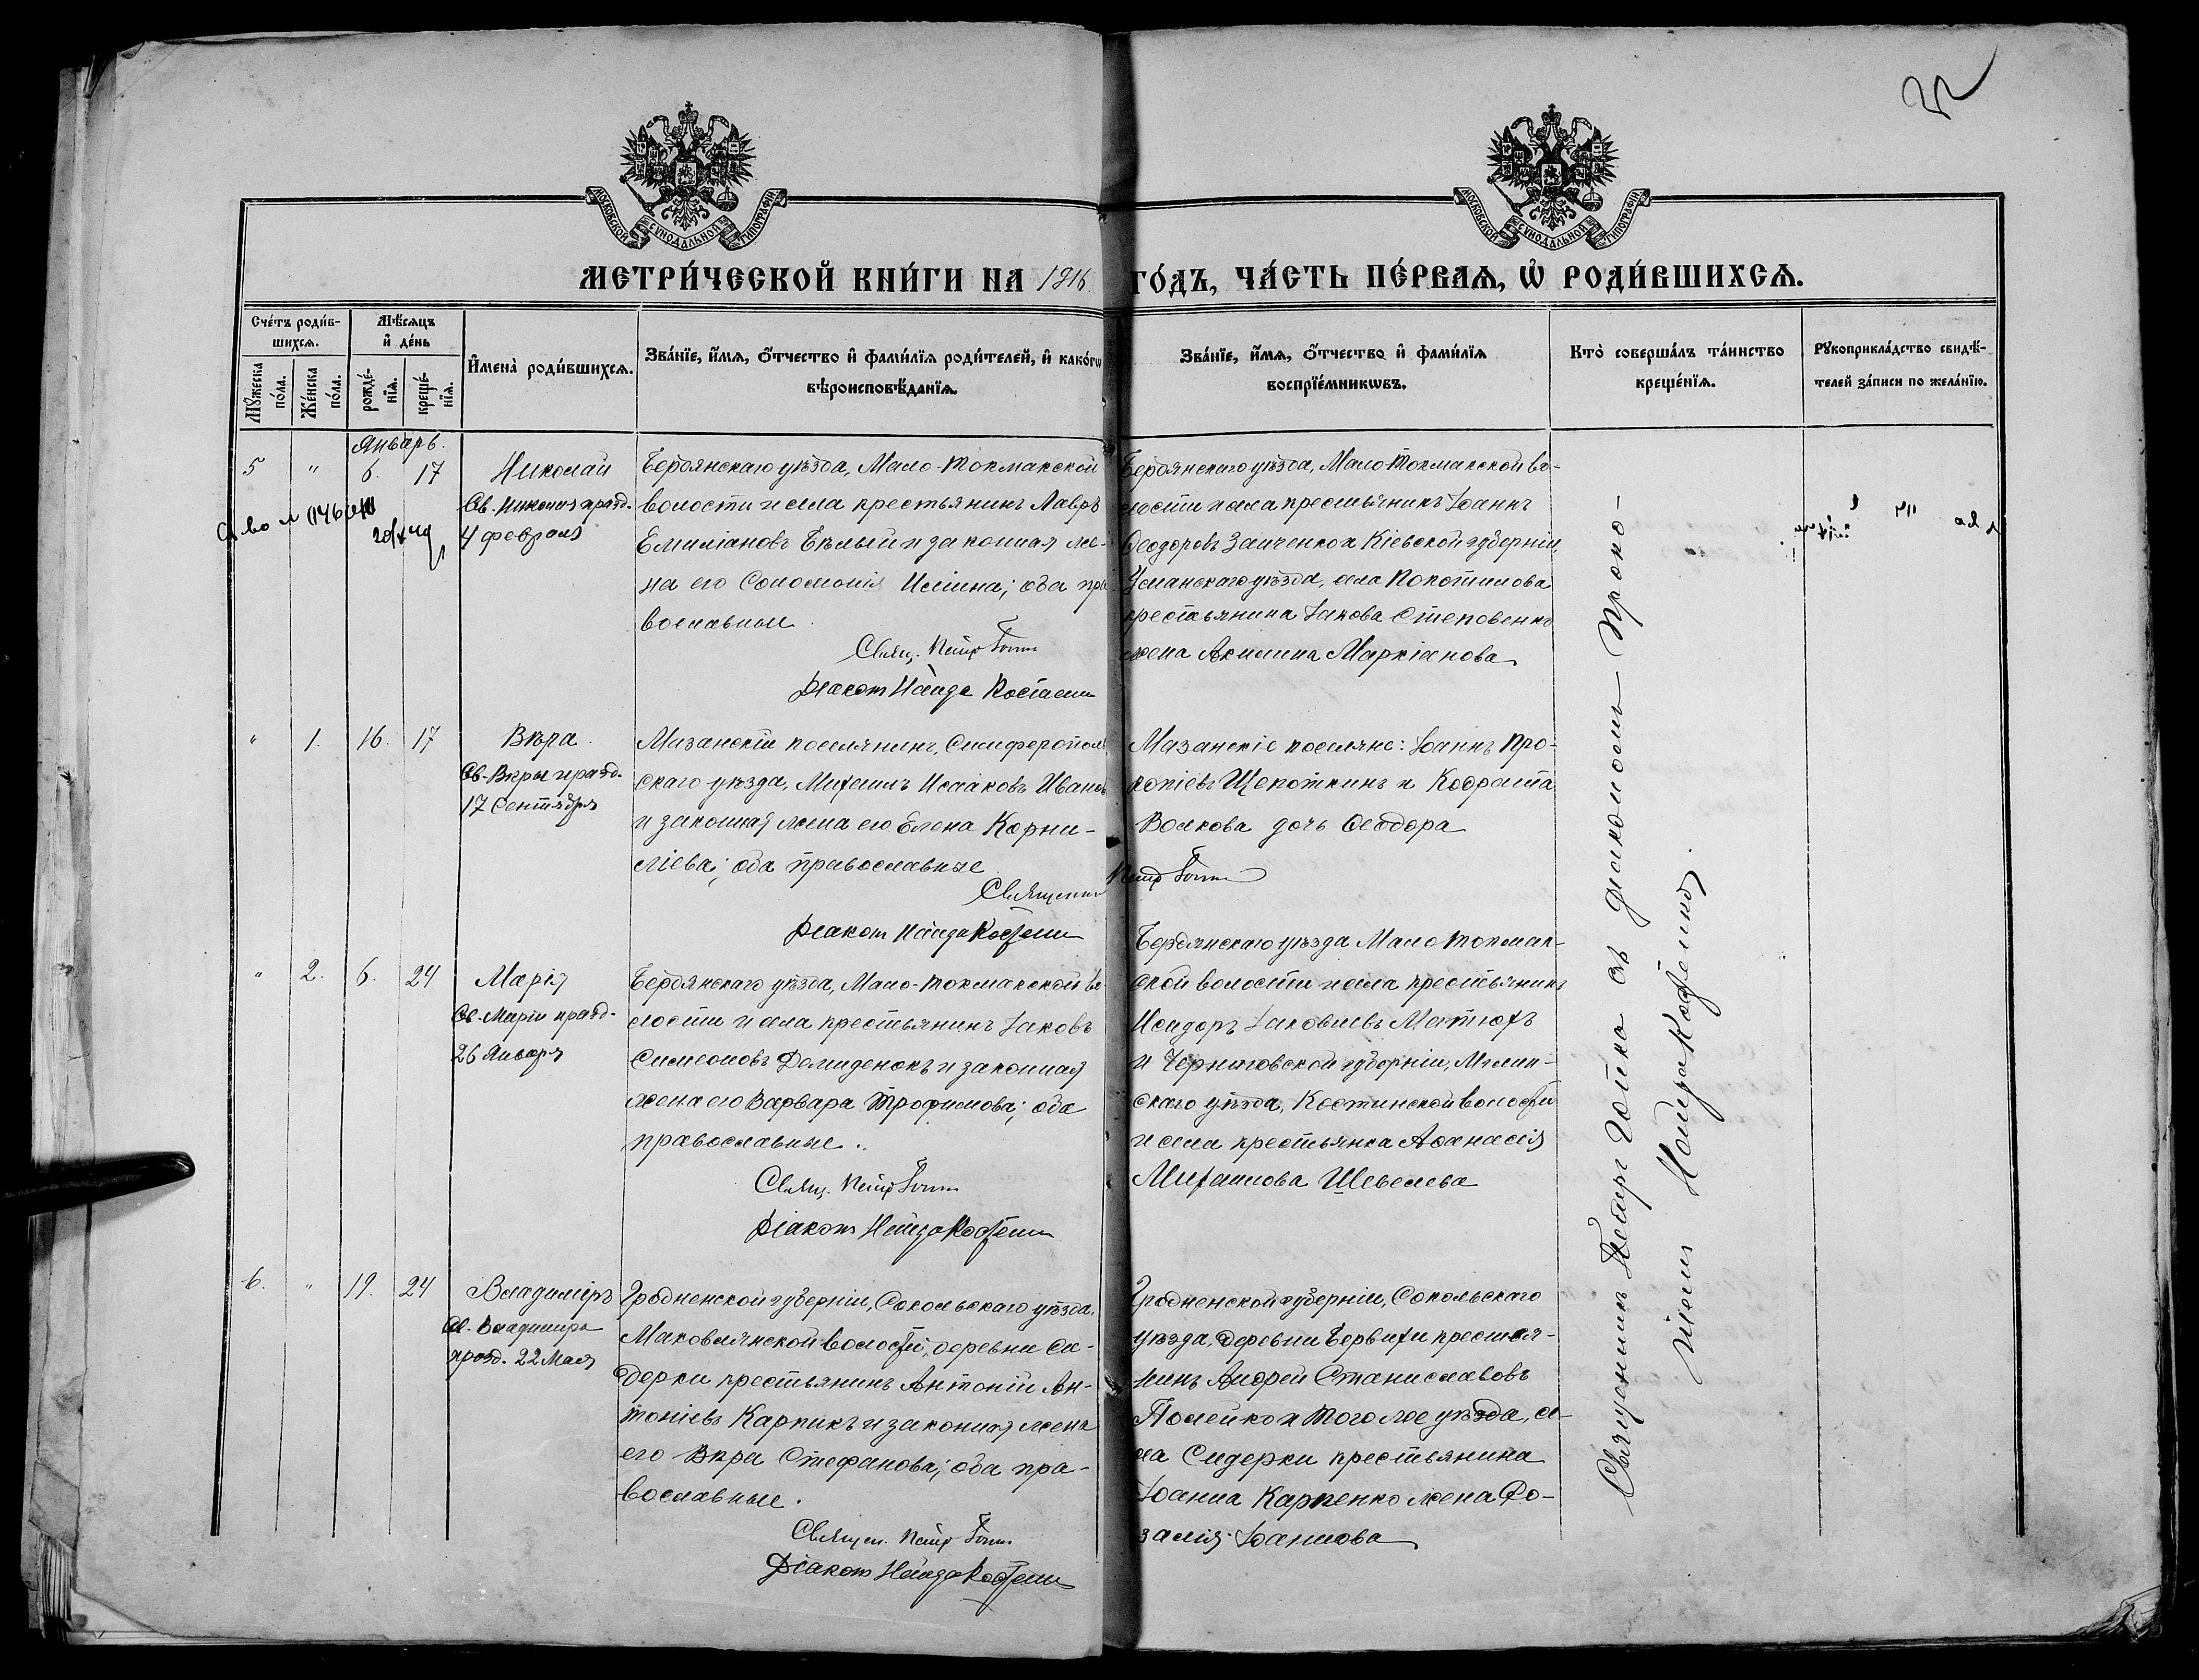 МОСКОВСКОЙ СУНОДАЛЬНОЙ ТИПОГРАФІИ
МОСКОВСКОЙ СУНОДАЛЬНОЙ ТИПОГРАФІИ
МЕТРИ́ЧЕСКОЙ КНИ́ГИ НА 1916 ГО́ДЪ, ЧА́СТЬ ПЕ́РВАЯ, Ѡ РОДИ́ВШИХСЯ.
Сче́тъ роди́в-
шихся.
Мꙋ́жеска по́ла.
Же́нска по́ла.
Мѣ́сяцъ и де́нь
рожде́-нїя.
креще́-нїя.
И҆мена̀ роди́вшихся.
Зва́нїе, и҆́мя, ѻ҆́тчество и҆ фами́лїя роди́телей, и҆ како́гѡ
вѣроисповѣ́данїя.
Зва́нїе, и҆́мя, ѻ҆́тчество и҆ фами́лїя
воспрїе́мникѡвъ.
Кто̀ соверша́лъ та́инство
креще́нїя.
Рꙋкоприкла́дство свидѣ́-
телей за́писи по жела́нїю.
Январь.
5 " 6. 17
Николай
Св. Николая празд.
4 февраля
Бердянскаго уѣзда, Мало-Токмакской
волости и села крестьянинъ Лавръ
Емиліановъ Бѣлый и законная же-
на его Соломонія Иліина; оба пра-
вославные.
Свящ. Петр
Діакон Найда Костенко
Бердянскаго уѣзда, Мало Токмакской во-
лости и села крестьянинъ Іоаннъ
Ѳеодоровъ Заиченко и Кіевской губерніи,
Уманскаго уѣзда, села Покотилова
крестьянина Іакова Степовенко
жена Акилина Маркіанова
" 1. 16. 17
Вѣра.
Св. Вѣры празд.
17 Сентября
Мазанскій поселянинъ, Симферополь-
скаго уѣзда, Михаилъ Исааковъ Ивановъ
и законная жена его Елена Корни-
ліева; оба православные
Священник Петр
Діакон Найда Костенко
Мазанскіе поселяне: Іоаннъ Про-
копіевъ Щепоткинъ и
Волкова дочь Ѳеодора
" 2. 6. 24
Марія
Св. Маріи празд.
26 Января
Бердянскаго уѣзда, Мало-Токмакской во-
лости и села крестьянинъ Іаковъ
Симеоновъ Демиденокъ и законная
жена его Варвара Трофимова; оба
православные.
Свящ. Петр
Діакон Найда Костенко
Бердянскаго уѣзда Мало Токмак-
ской волости и села крестьянинъ
Исидоръ Іаковлевъ Матюхъ
и Черниговской губерніи, Мглин-
скаго уѣзда, Костинской волости
и села крестьянка Аѳанасія
Михаилова Шевелева
6. " 19. 24
Владиміръ
Св. Владиміра
празд. 22 Мая
Гродненской губерніи, Сокольскаго уѣзда,
Маковлянской волости, деревни Си-
дерки крестьянинъ Антоній Ан-
тоніевъ Карпикъ и законная жена
его Вѣра Стефанова; оба пра-
вославные.
Священ. Петр
Діакон Найда Костенко
Гродненской губерніи, Сокольскаго
уѣзда, деревни Бервихи крестья-
нинъ Андрей Станиславовъ
Полейко и того же уѣзда, се-
ла Сидерки крестьянина
Іоанна Карпенко жена Ро-
залія Іоаннова
Священникъ Петръ съ діакономъ Проко-
піемъ Найда Костенко.